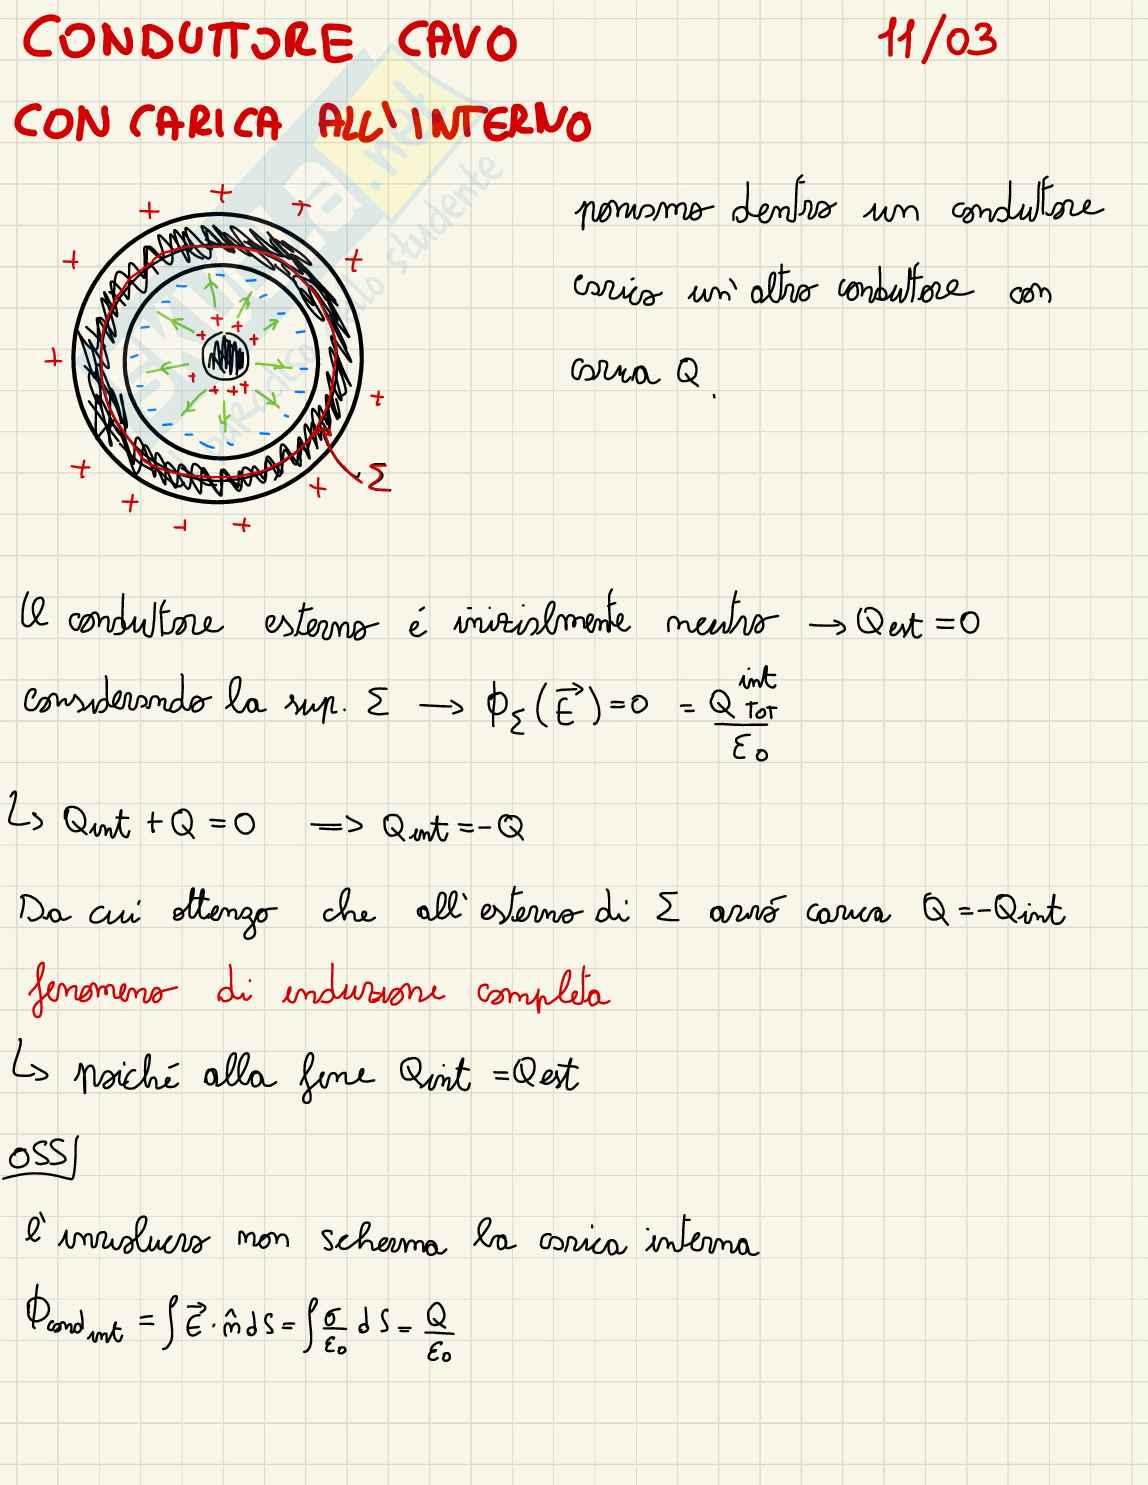 CONDUTTORE CAVO 11/03
CON CARICA ALL'INTERNO
poniamo dentro un conduttore
carico un'altro conduttore con
carica Q.
Σ
Il conduttore esterno é inizialmente neutro → Q est = 0
considerando la sup. Σ → ϕ_Σ (E⃗) = 0 = Q^int_TOT / ε₀
↳ Q int + Q = 0 ⟹ Q int = -Q
Da cui ottengo che all'esterno di Σ avró carica Q = -Q int
fenomeno di induzione completa
↳ poiché alla fine Q int = Q est
OSS
l'involucro non scherma la carica interna
ϕ cond int = ∫ E⃗ · n̂ dS = ∫ σ/ε₀ dS = Q/ε₀